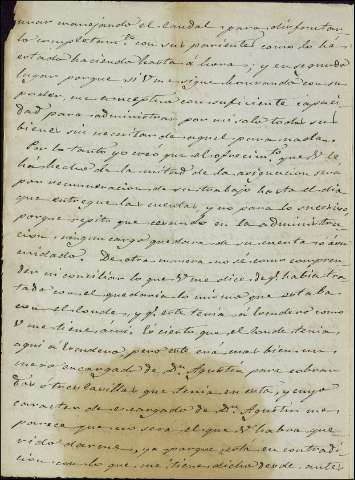 nuar manejando el caudal, para disfrutar
lo completam.te con sus parientes como lo ha
estado haciendo hasta ahora; y en segundo
lugar porque si Vm. me sigue honrando con su
poder, me conceptúo con suficiente capaci
dad para administrar por mi solo todos sus
bienes sin necesitar de aquel para nada.
Por lo tanto yo creo que el ofrecim.to que Vm. le
ha hecho de la mitad de la asignacion sera
por remuneracion de su trabajo hasta el dia
que entregue las cuentas y no para lo sucesivo,
porque repito que cesando en la administra
cion, ningun cargo quedara de su cuenta ni com
De otra manera no sé como compren
der ni conciliar lo que Vm. me dice de q.e habia tra
tado con el quedaria lo mismo que estaba
con el Conde, y q.e este tenia á como
Vm. me tiene a mi. Es cierto que el Conde tenia
aqui á pero este era mas bien un
encargado de D.n Agustin para cobran
zas ó que tenia en esta, y cuyo
caracter de encargado de D.n Agustin me
parece que no sera el que Vm. habra que
rido darme, ya porque está en contradi
cion con lo que me tiene dicho desde ante